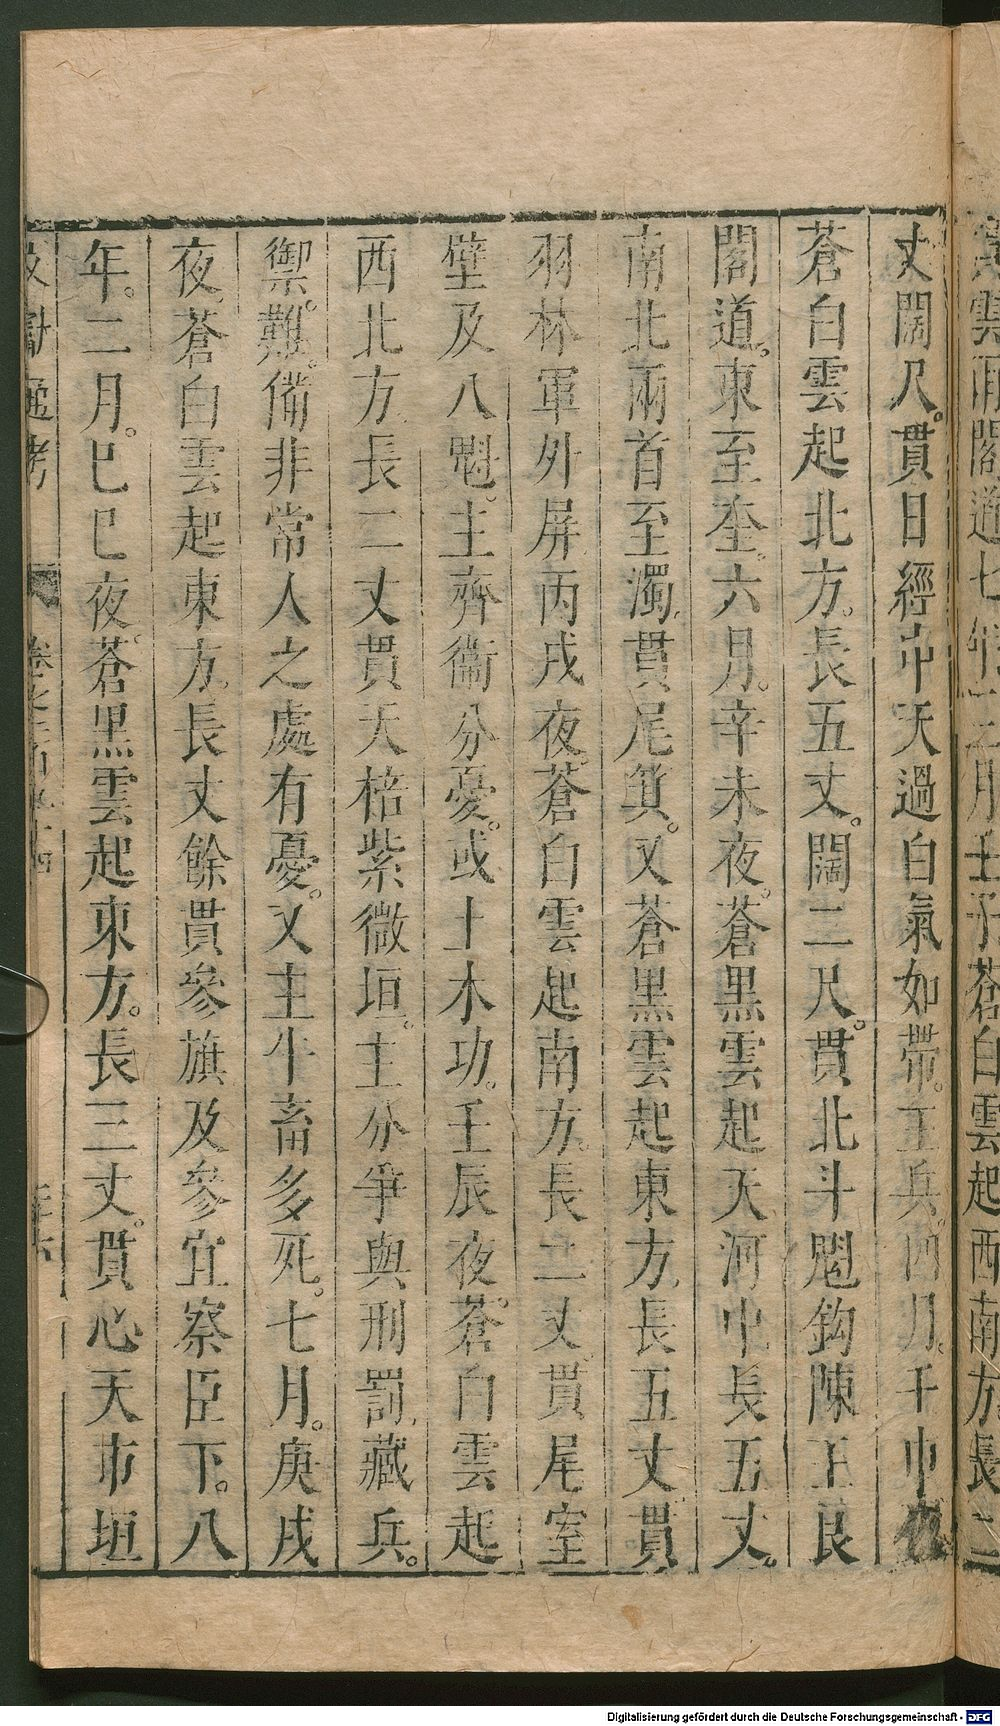 雲貫閣道七 二月壬子蒼白雲起西南方長二
丈闊尺。貫日經中天過白氣如帶。主兵。四月。壬申夜
蒼白雲起北方。長五丈。闊二尺。貫北斗魁鈎陳主艮
閣道。東至奎。六月。辛未夜。蒼黑雲起天河中長五丈。
南北兩首至濁。貫尾箕。又蒼黑雲起東方。長五丈貫
羽林軍外屏丙戌夜。蒼白雲起南方。長二丈。貫尾室
壁及八魁。主齊衞分憂。或土木功。壬辰夜。蒼白雲起
西北方長二丈貫天棓紫微垣。主分爭與刑罰。藏兵。
禦。難。備非常人之處有憂。又主牛畜多死。七月。庚戌
夜。蒼白雲起東方。長丈餘貫參旗及參宜察臣下。八
年。二月。巳巳夜。蒼黑雲起東方。長三丈。貫心天市垣
文獻通考 卷之二百九十四 二十六
Digitalisierung gefördert durch die Deutsche Forschungsgemeinschaft - DFG